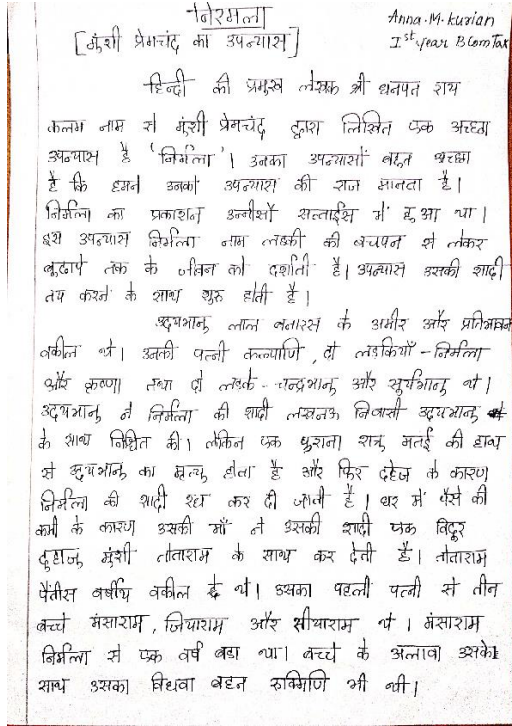 निरमला
Anna.M.Kurian
[मुंशी प्रेमचंद का उपन्यास]
Ist year B Com Tax
हिन्दी की प्रमुख लेखक श्री धनपत राय
कलम नाम से मुंशी प्रेमचंद द्वारा लिखित एक अच्छा
उपन्यास है 'निर्मला'। उनका उपन्यासों बहुत अच्छा
है कि हमने उनको उपन्यास की राज मानता है।
निर्मला का प्रकाशन उन्नीसौ सत्ताईस में हुआ था।
इस उपन्यास निर्मला नाम लडकी की बचपन से लेकर
बुढापे तक के जीवन को दर्शाती है। उपन्यास उसकी शादी
तय करने के साथ शुरु होती है।
उदयभानु लाल बनारस के अमीर और प्रतिभावन
वकील थे। उनकी पत्नी कल्याणि, दो लडकियाँ - निर्मला
और कृष्णा तथा दो लडके - चन्द्रभानु और सुर्यभानु थे।
उदयभानु ने निर्मला की शादी लखनऊ निवासी उदयभानु
के साथ निश्चित की। लेकिन एक पुराना शत्रु मतई की हाथ
से उदयभानु का मृत्यु होता है और फिर दहेज के कारण
निर्मला की शादी रध कर दी जाती है। घर में पैसे की
कमी के कारण उसकी माँ ने उसकी शादी एक विदुर
दुहाजु मुंशी तोताराम के साथ कर देती है। तोताराम
पैंतीस वर्षीय वकील थे। उसका पहली पत्नी से तीन
बच्चे मंसाराम, जियाराम और सीयाराम थे। मंसाराम
निर्मला से एक वर्ष बडा था। बच्चे के अलावा उसके
साथ उसका विधवा बहन रुक्मिणि भी थी।